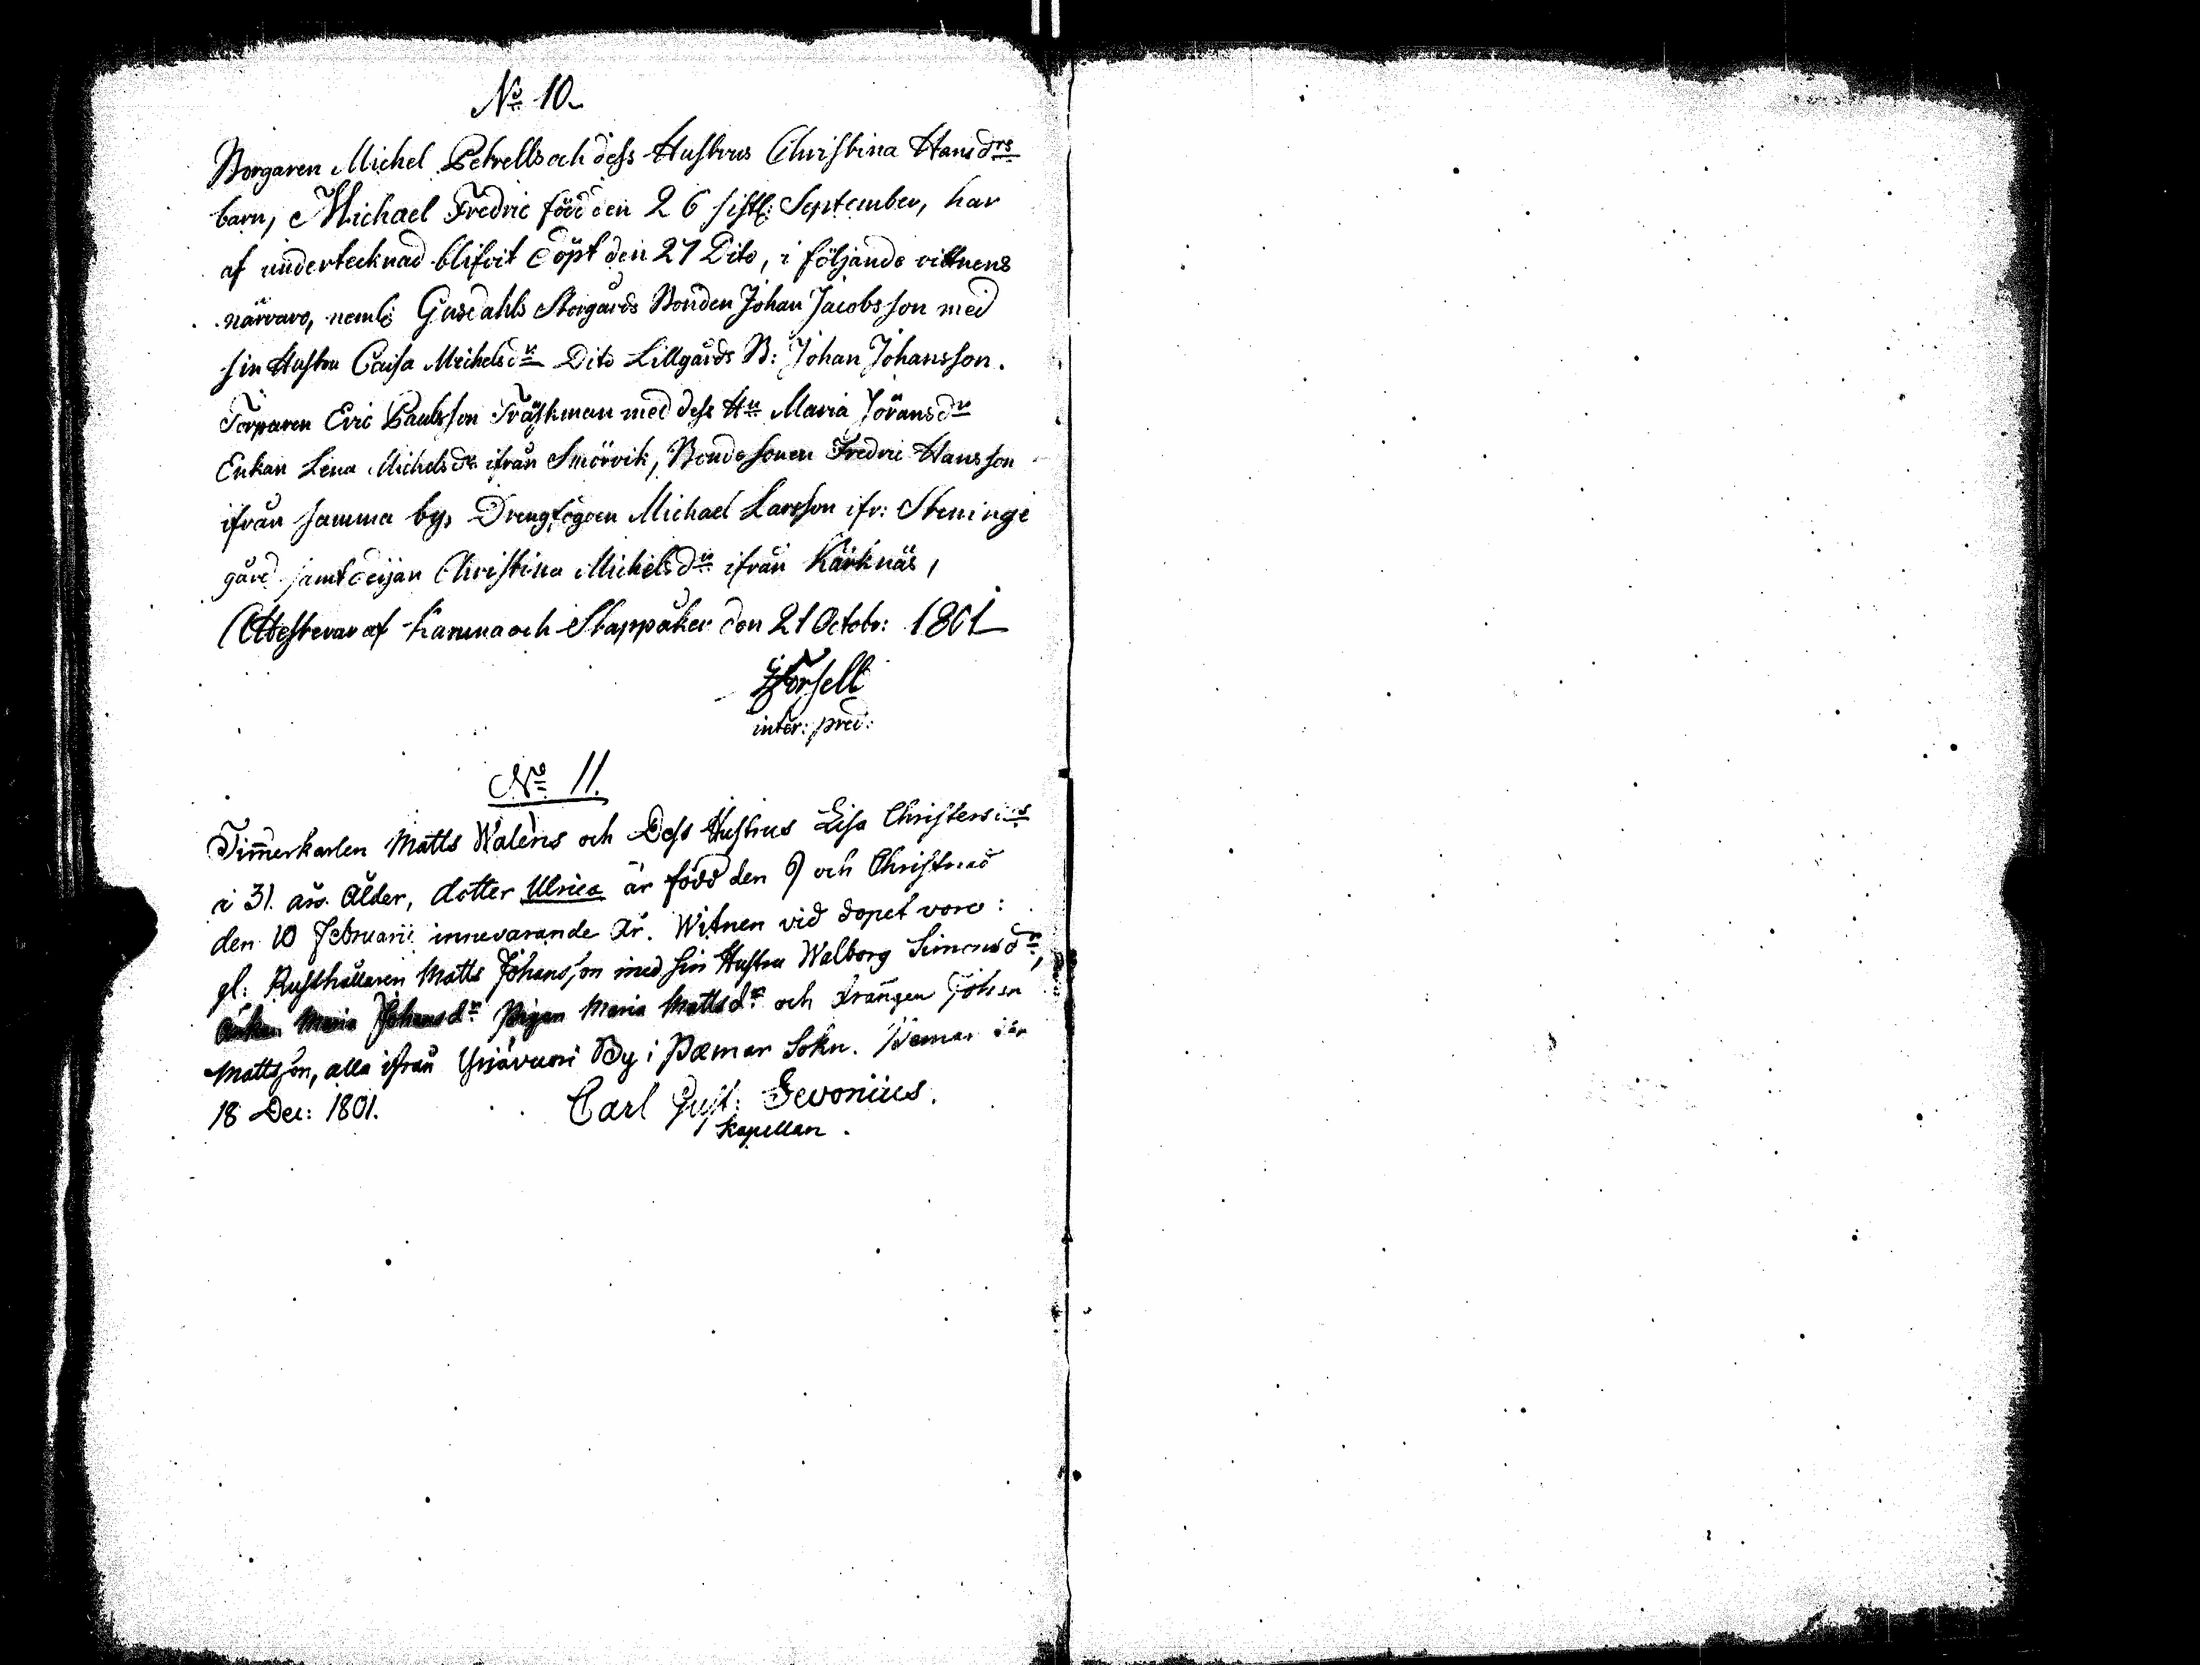 No 10.
Borgaren Michel Petrells och dess Hustrus Christina Hansdrs
barn, Michael Fredric född den 26 sistl: September, har
af undertecknad blifvit döpt den 27 Dito, i följande vittnens
närvaro, neml: Gusdahls Storgårds Bonden Johan Jacobsson med
sin Hustru Caisa Michelsdr Dito Lillgårds B: Johan Johansson.
Torparen Eric Paulsson Träskman med dess Hu Maria Jöransdr
Enkan Lena Michelsdr ifrån Smörvik, Bondesonen Fredric Hansson
ifrån samma by, Drengfogden Michael Larsson ifr: Steninge
gård samt deijan Christina Michelsdr ifrån Kärknäs,
Attesterar af Karuna och Stappåker den 21 Octobr: 1801
Forsell
inter: pred:
No 11.
Timmerkarlen Matts Waléns och Dess Hustrus Lisa Christersdrs
i 31. års Ålder, dotter Ulrica är född den 9 och Christnad
den 10 Februarii innevarande År. Witnen vid dopet voro:
gl: Rusthållaren Matts Johansson med sin Hustru Walborg Simonsdr,
Enkan Maria Johansdr Pigan Maria Mattsdr och drängen Johan
Mattsson, alla ifrån By i Pæmar Sokn. Pemar den
18 Dec: 1801. Carl Gust: Gevonius.
Kapellan.